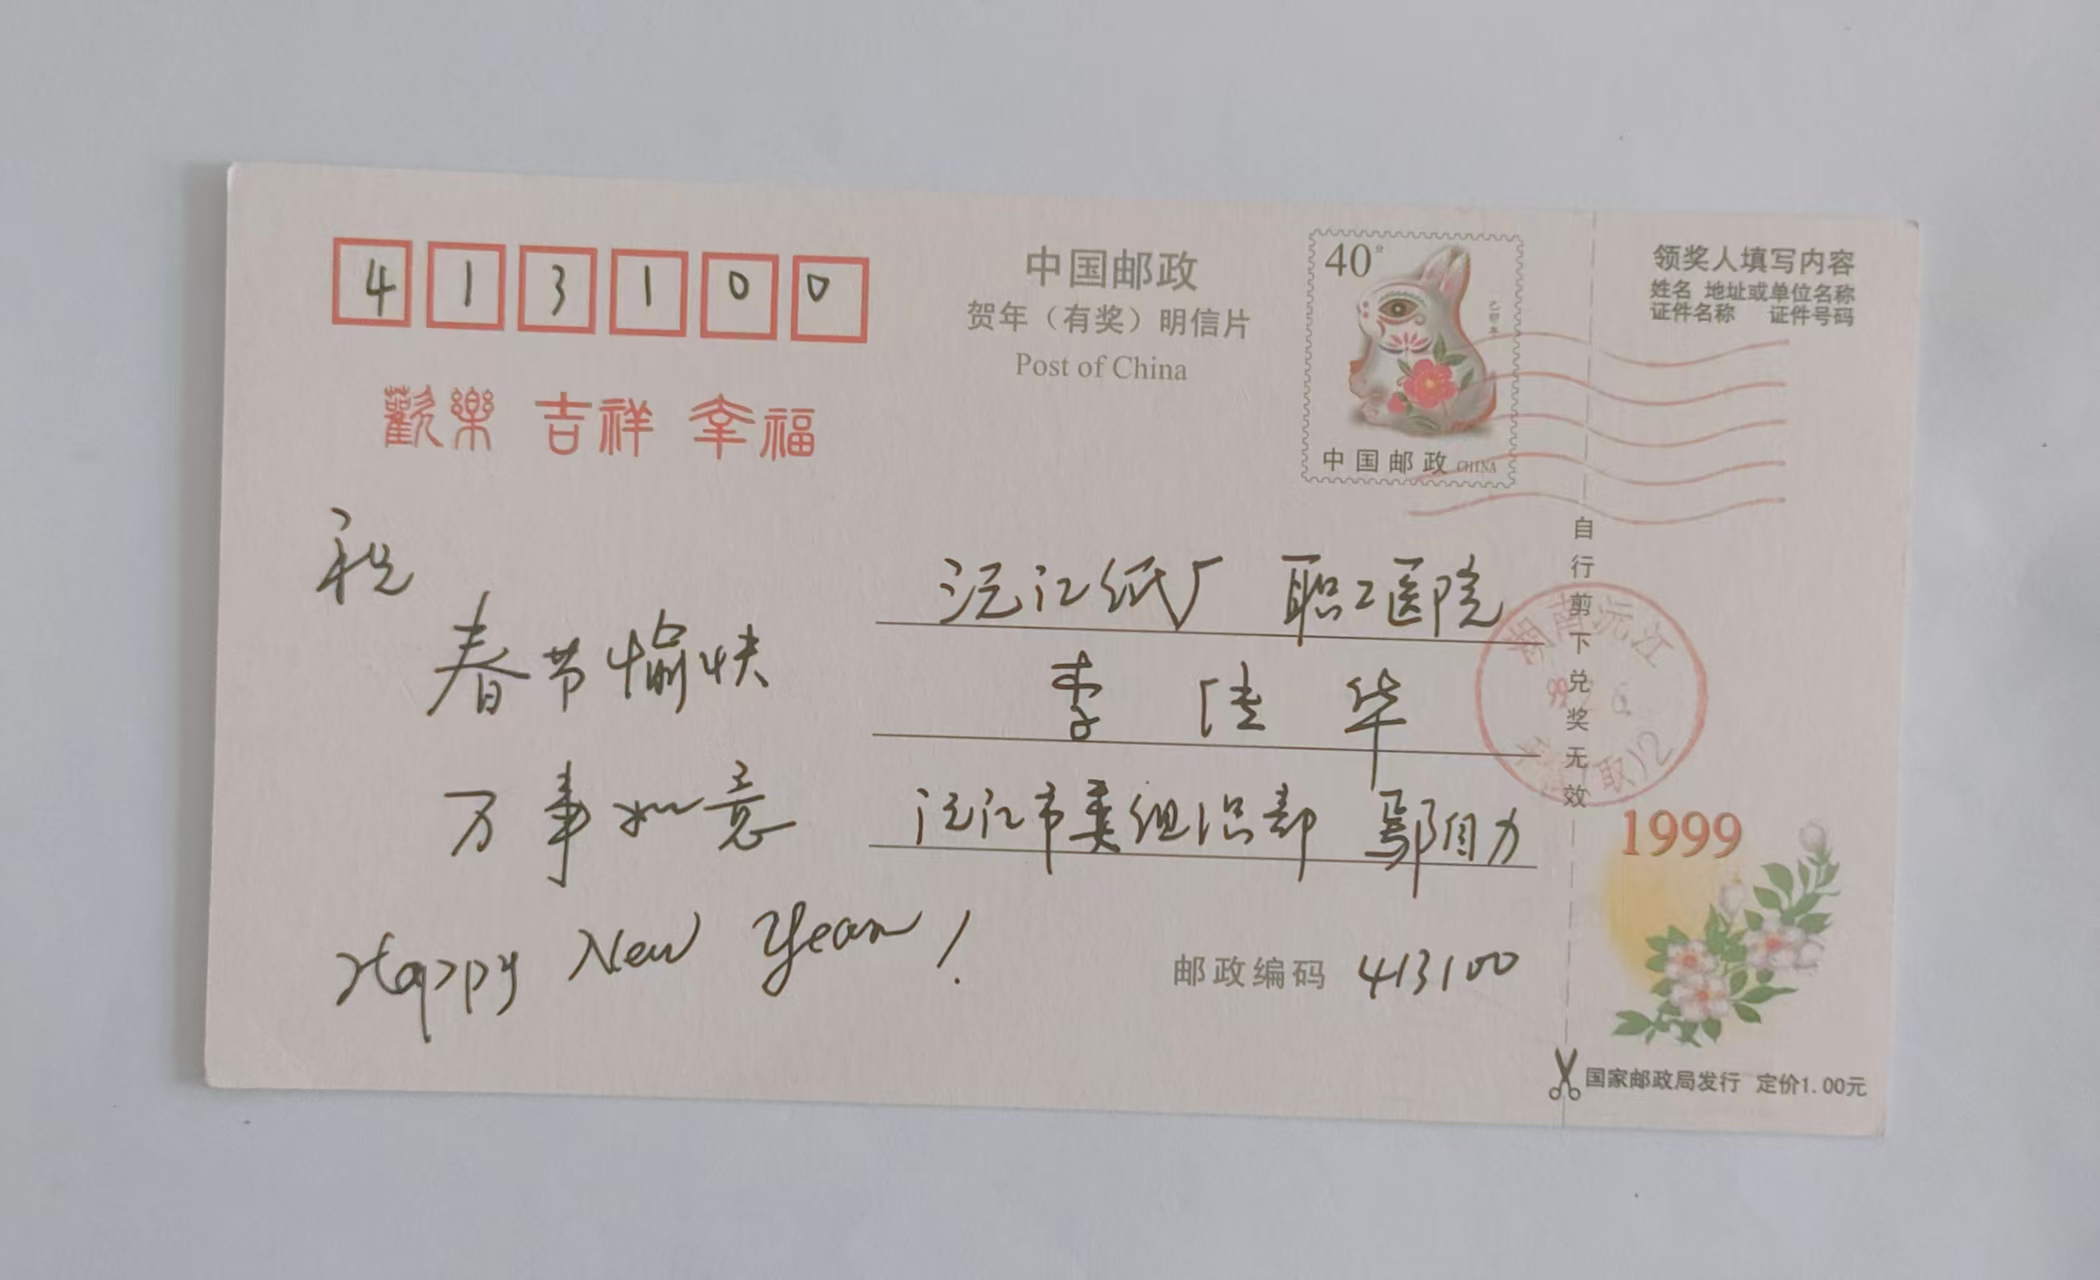 413100
中国邮政
贺年（有奖）明信片
Post of China
40分
己卯年
中国邮政 CHINA
领奖人填写内容
姓名 地址或单位名称
证件名称 证件号码
歡樂 吉祥 幸福
祝
春节愉快
万事如意
Happy New Year!
沅江纸厂 职工医院
李陆华
沅江市委组织部 鄢自力
邮政编码 413100
自行剪下兑奖无效
湖南沅江
(取)12
1999
国家邮政局发行 定价1.00元